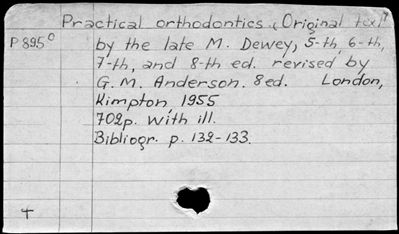 Practical orthodontics (Original text
P 895° by the late M. Dewey, 5-th, 6-th,
7-th, and 8-th ed. revised by
G. M. Anderson. 8 ed. London,
Kimpton, 1955
702 p. with ill.
Bibliogr. p. 132-133.
4